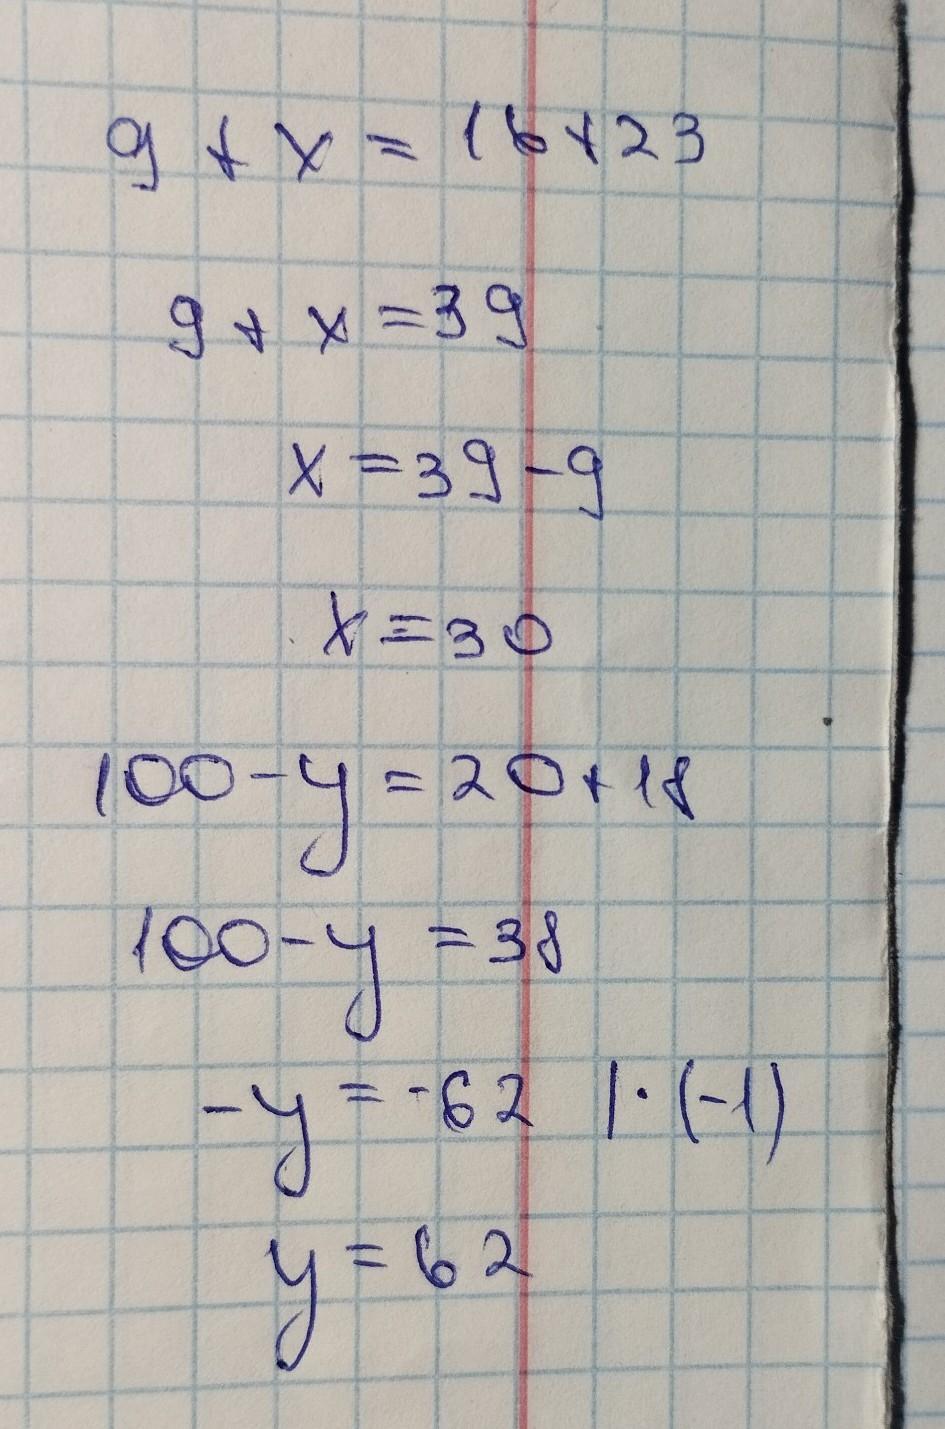 9 + x = 16+23
9 + x = 39
x = 39 - 9
x = 30
100 - y = 20 + 18
100 - y = 38
-y = -62 | · (-1)
y = 62